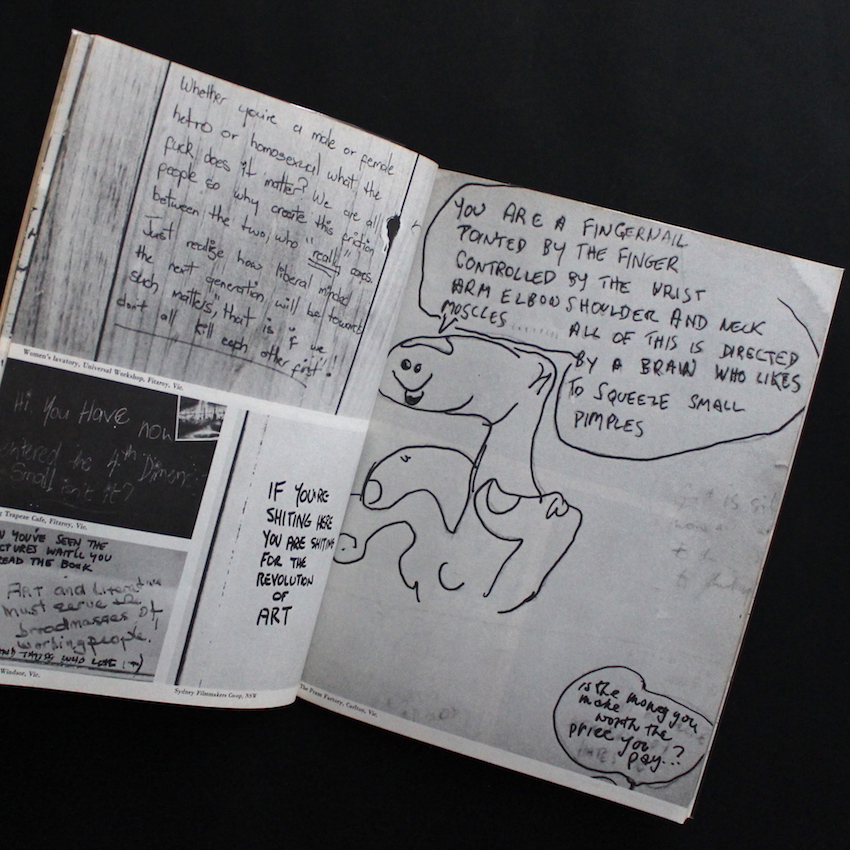 Whether you're a male or female
hetro or homosexual what the
fuck does it matter? We are all
people so why create this friction
between the two, who "really" cares.
Just realise how liberal minded
the next generation will be towards
such matters, "that is if we
dont all kill each other first"!
Women's lavatory, Universal Workshop, Fitzroy, Vic.
Hi. You Have now
entered the 4th Dimens
Small isn't it?
Trapeze Cafe, Fitzroy, Vic.
YOU'VE SEEN THE
WAIT'LL YOU
READ THE BOOK
ART and Literature
must serve the
broadmasses of
working people.
AND THOSE WHO
Windsor, Vic.
IF YOU'RE
SHITING HERE
YOU ARE SHITING
FOR THE
REVOLUTION
OF
ART
Sydney Filmmakers Co-op, NSW
YOU ARE A FINGERNAIL
POINTED BY THE FINGER
CONTROLLED BY THE WRIST
ARM ELBOW SHOULDER AND NECK
MOSCLES ...... ALL OF THIS IS DIRECTED
BY A BRAIN WHO LIKES
TO SQUEEZE SMALL
PIMPLES
is the money you
make
worth the
price you
pay..?
The Pram Factory, Carlton, Vic.